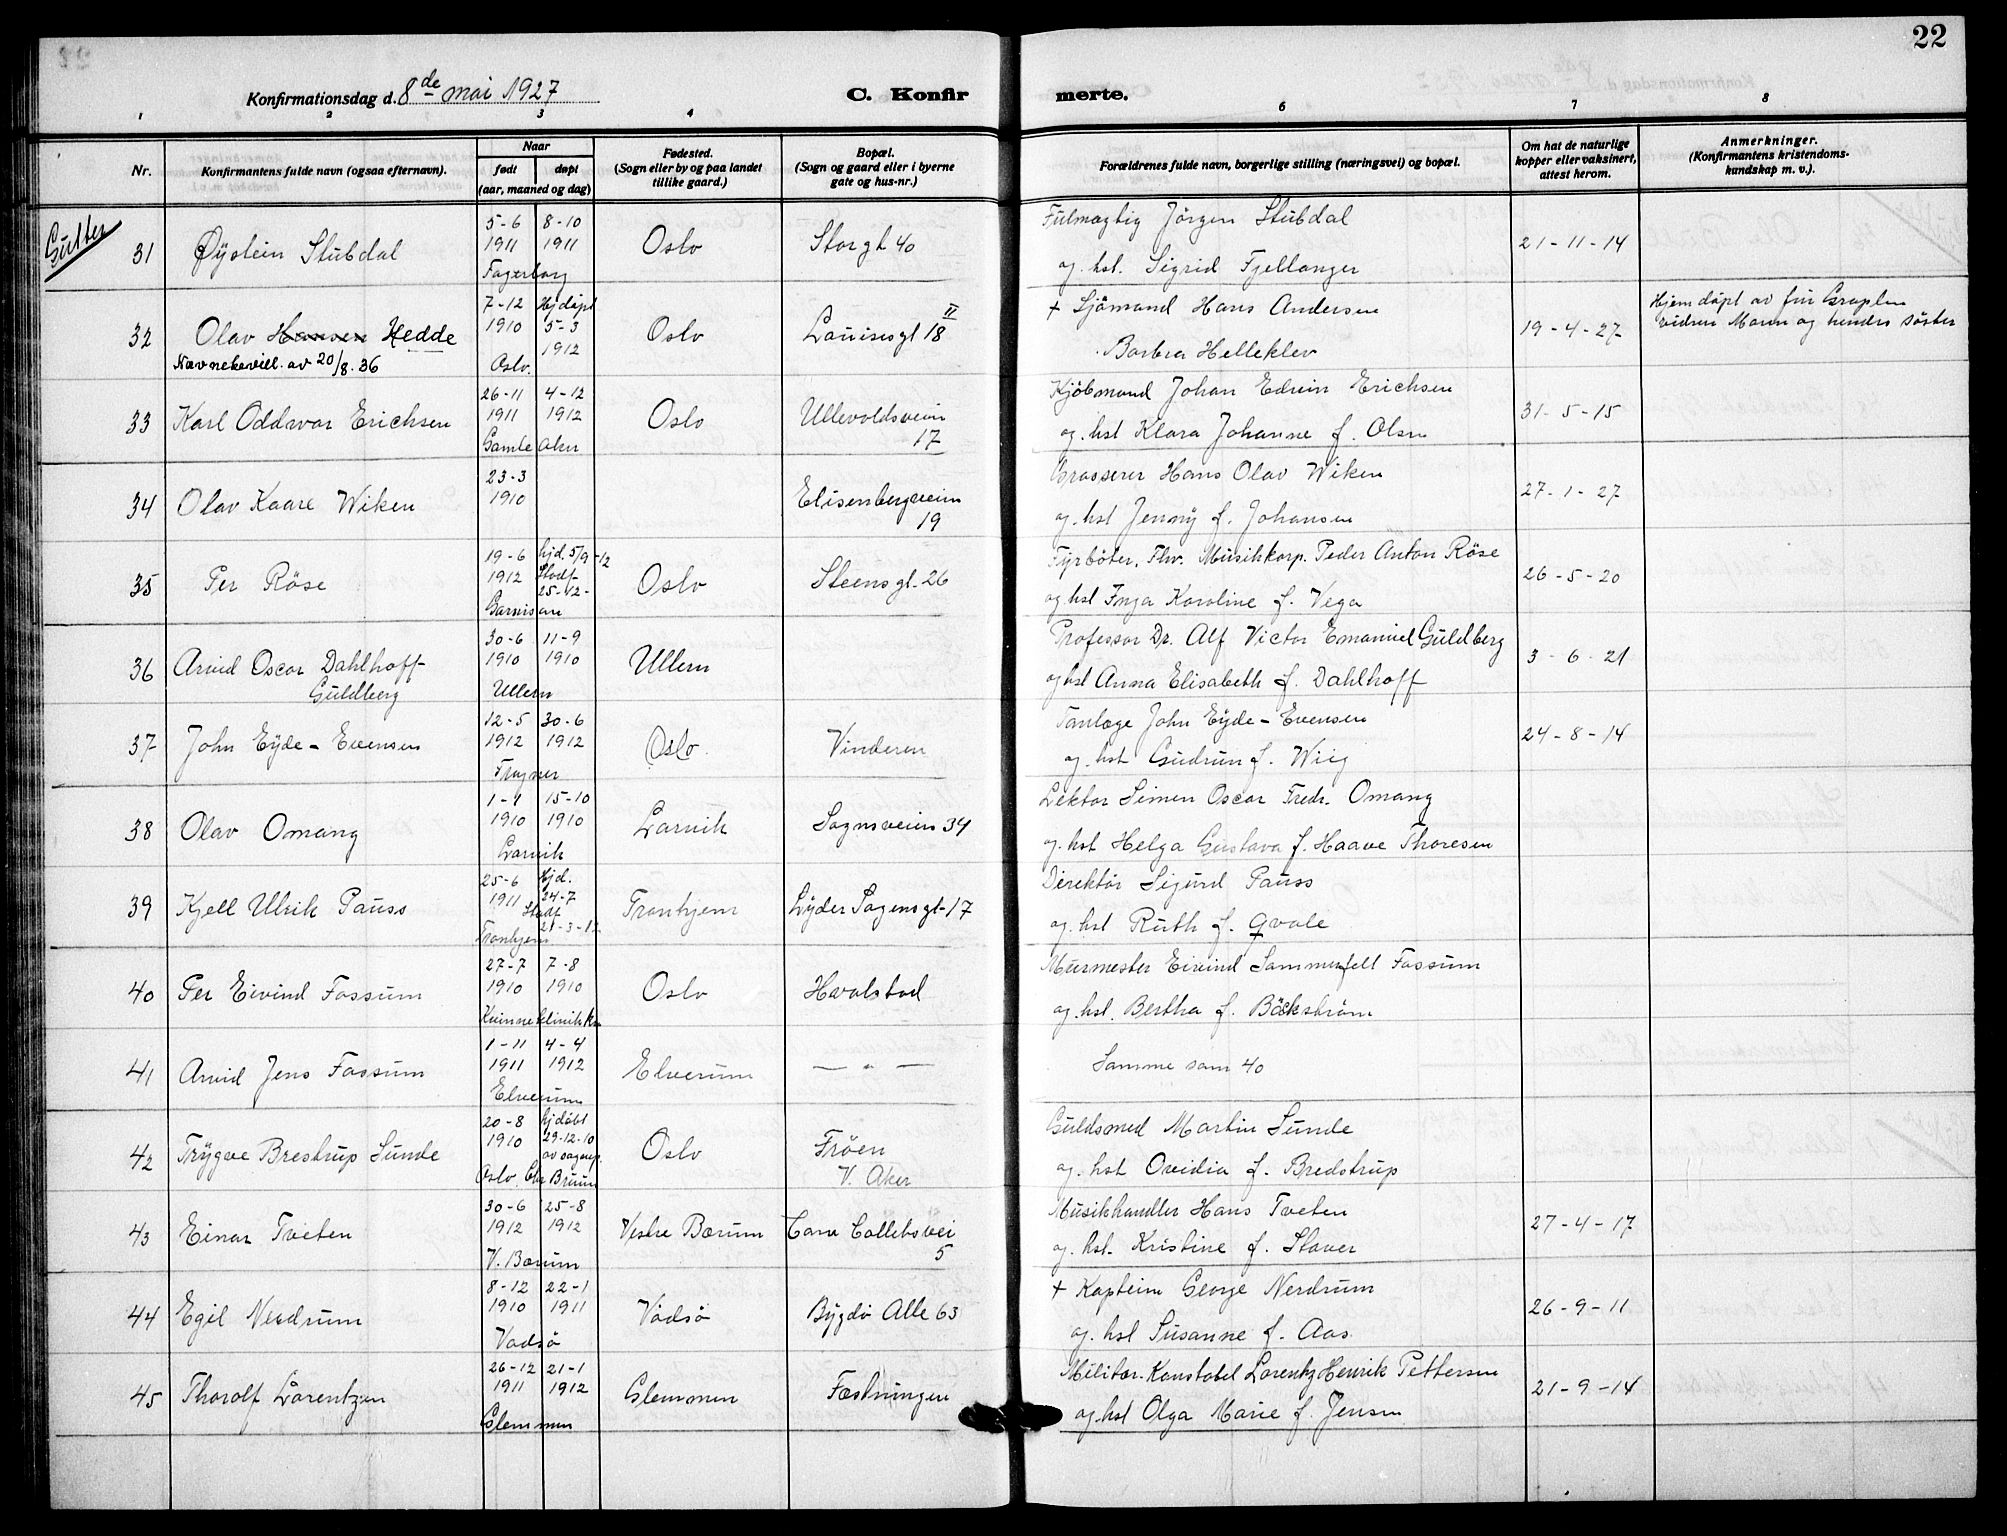 22
Konfirmationsdag d. 8de mai 1927
C. Konfirmerte.
1 2 3 4 6 7 8
Nr.
Konfirmantens fulde navn (ogsaa efternavn).
Naar
født døpt
(aar, maaned og dag)
Fødested.
(Sogn eller by og paa landet
tillike gaard.)
Bopæl.
(Sogn og gaard eller i byerne
gate og hus-nr.)
Forældrenes fulde navn, borgerlige stilling (næringsvei) og bopæl.
Om hat de naturlige
kopper eller vaksinert,
attest herom.
Anmerkninger.
(Konfirmantens kristendoms-
kundskap m. v.).
Gutter
31 Øystein Stubdal
5-6 1911
8-10 1911
Fagerborg
Oslo
Storgt 40
Fulmægtig Jörgen Stubdal
og hst. Sigrid Fjellanger
21-11-14
32 Olav Hansen Hedde
Navnebevill. av 20/8.36
7-12 1910
Hjdöpt 5-3 1912
Oslo.
Oslo
Louisesgt 18 II
+ Sjömand Hans Andersen
Borbra Helleklev
19-4-27
Hjemdöpt av
og hendes söster
33 Karl Oddvar Erichsen
26-11 1911
4-12 1912
Gamle Aker
Oslo
Ullevoldsveien
17
Kjöbmand Johan Edvin Erichsen
og hst Klara Johanne f. Olsen
31-5-15
34 Olav Kaare Wiken
23-3 1910
Elisenbergveien
19
Grosserer Hans Olav Wiken
og hst Jenny f. Johansen
27-1-27
35 Per Röse
19-6 1912
hjd. 5/9-12
Stadf. 25-12-
Garnison
Oslo
Steensgt. 26
Fyrböter, Fhv. Musikkorp. Peder Anton Röse
og hst Inga Karoline f. Vega
26-5-20
36 Arvid Oscar Dahlhoff-
Guldberg
30-6 1910
11-9 1910
Ullern
Ullern
Professor Dr. Alf Victor Emanuel Guldberg
og hst Anna Elisabeth f. Dahlhoff
3-6-21
37 John Eyde-Evensen
12-5 1912
30-6 1912
Frogner
Oslo
Vinderen
Tanlæge John Eyde-Evensen
og hst Gudrun f. Wiig
24-8-14
38 Olav Omang
1-1 1910
15-10 1910
Larvik
Larvik
Sognsveien 34
Lektor Simen Oscar Fredr. Omang
og hst Helga Gustava f. Haave Thoresen
39 Kjell Ulrik Pauss
25-6 1911
Hjd. 24-7
Stadf 21-3-12
Tronhjem
Tronhjem
Lyder Sagensgt-17
Direktör Sigurd Pauss
og hst Ruth f. Qvale
40 Per Eivind Fossum
27-7 1910
7-8 1910
Kvinneklinikken
Oslo
Hvalstad
Murmester Eivind Sommerfelt Fossum
og hst. Bertha f. Bäckström
41 Arvid Jens Fossum
1-11 1911
4-4 1912
Elverum
Elverum
— " —
Samme som 40
42 Trygve Brestrup Sunde
20-8 1910
hjdöbt 29-12-10
av sognep.
Oslo. Chr Bruun
Oslo
Fröen
V. Aker
Guldsmed Martin Sunde
og hst Ovidia f. Bredstrup
43 Einar Tveten
30-6 1912
25-8 1912
V. Bærum
Vestre Bærum
Cam Colletsvei
5
Musikhandler Hans Tveten
og hst. Kristine f. Staver
27-4-17
44 Egil Nerdrum
8-12 1910
22-1 1911
Vadsö
Vadsö
Bygdö Alle 63
+ Kaptein George Nerdrum
og hst Susanne f. Aas
26-9-11
45 Thorolf Lorentzen
26-12 1911
21-1 1912
Glemmen
Glemmen
Fæstningen
Militær-Konstabel Lorentz Henrik Pettersen
og hst Olga Marie f. Jensen
21-9-14